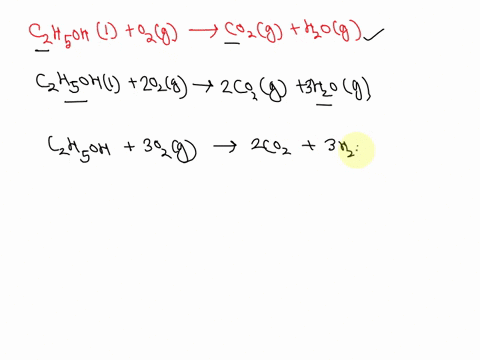 C₂H₅OH (l) + O₂(g) → CO₂(g) + H₂O(g) ✓
C₂H₅OH(l) + 2O₂(g) → 2CO₂(g) + 3H₂O(g)
C₂H₅OH + 3O₂(g) → 2CO₂ + 3H₂